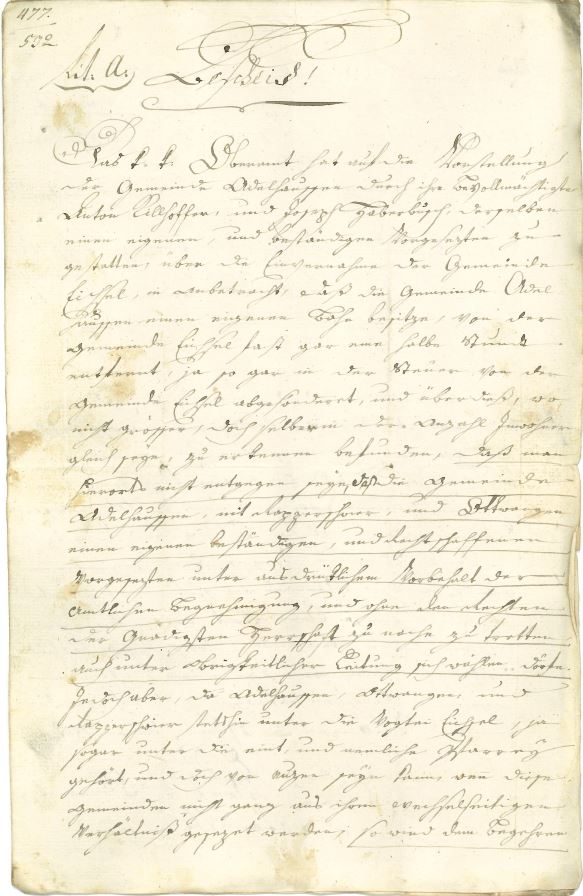 477.
592
Lit. A. Bescheid!
Das k. k. Oberamt hat auf die Vorstellung
der Gemeinde Adelhaussen durch ihre Bevollmächtigte
Anton Killhoffer, und Joseph Haberbusch, derselben
einen eigenen, und beständigen Vorgesezten zu
gestatten, über die Einvernahme der Gemeinde
Eichsel, in Anbetracht, daß die Gemeinde Adel
haussen einen eigenen Bahn besitze, von der
Gemeinde Eichsel fast gar eine halbe Stund
entfernt, ja so gar in der Steuer von der
Gemeinde Eichsel abgesönderet, und überdaß, wo
nicht grösser, doch selber in der Anzahl Inwohner
gleich seye, zu erkennen befunden, daß man
hierorts nicht entgegen seye, daß die Gemeinde
Adelhaussen, mit Rapperschwier, und Ottwangen
einen eigenen beständigen, und rechtschaffenen
Vorgesezten unter ausdrüklichem Vorbehalt der
Amtlichen Begnehmigung, und ohne den Rechten
der Gnädigsten Herrschaft zu nache zu tretten
auch unter Obrigkeitlicher Leitung sich wählen dörfe.
Jedoch aber, da Adelhaussen, Ottwangen, und
Rapperschwier stetshin unter die Vogtei Eichsel, ja
sogar unter die eint, und nemliche Pfarrey
gehört, und doch von Nuzen seyn kann, wen diese
Gemeinden nicht ganz aus ihrem wechselseitigen
Verhältniß gesezet werden, so wird dem Begehren